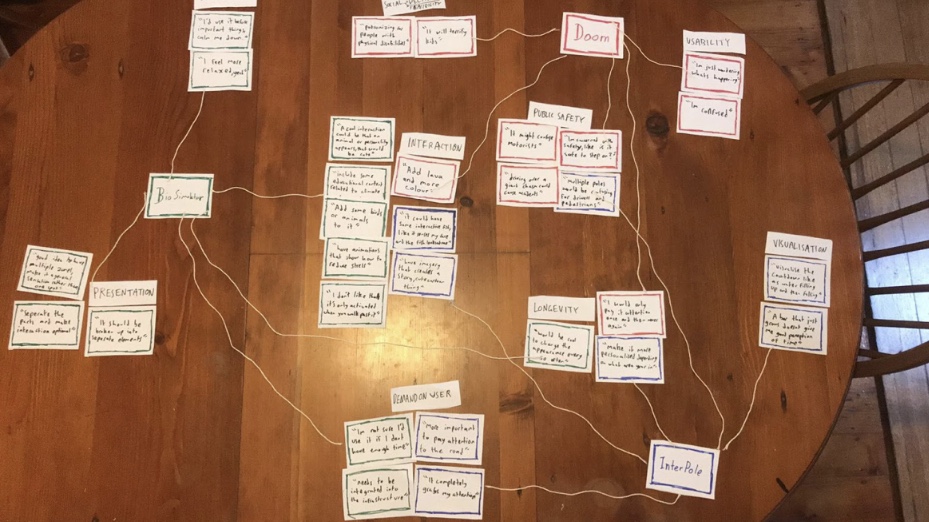 "I'd use it before
important things
calm me down"
"I feel more
relaxed, good"
people with
"It will terrify
kids"
Doom
USABILITY
"Im just wondering
whats happening"
"Im confused"
PUBLIC SAFETY
"It might confuse
motorists"
"Im concerned with
safety, like is it
safe to step on?"
"driving over a
giant chasm could
"multiple poles
would be
for drivers and
pedestrians"
"A cool interaction
could be that an
animal or personality
appears, that would
be cute"
INTERACTION
"Add lava
and more
colour"
"include some
educational content
related to climate"
"Add some birds
or animals
to it"
"it could have
some interactive
and the fish
"have animations
that show how to
reduce
"have imagery
that creates a
story,
thing"
"I dont like that
its only activated
when you walk past it"
Bio Simulator
"good idea to have
multiple zones,
make it a
rather than
one spot"
PRESENTATION
"Seperate the
parts and make
interaction optional"
"It should be
broken up into
seperate elements"
LONGEVITY
"I would only
pay it attention
once and then never
again"
"would be cool
to change the
appearance every
so often"
"make it more
personalised depending
on what area your in"
VISUALISATION
"visualise the
countdown like
as water filling
up and then falling"
"A bar that just
grows doesnt give
me good perception
of time"
DEMAND ON USER
"Im not sure I'd
use it if I dont
have enough time"
"More important
to pay attention
to the road"
"needs to be
integrated into
the infrastructure"
"It completely
grabs my attention"
InterPole